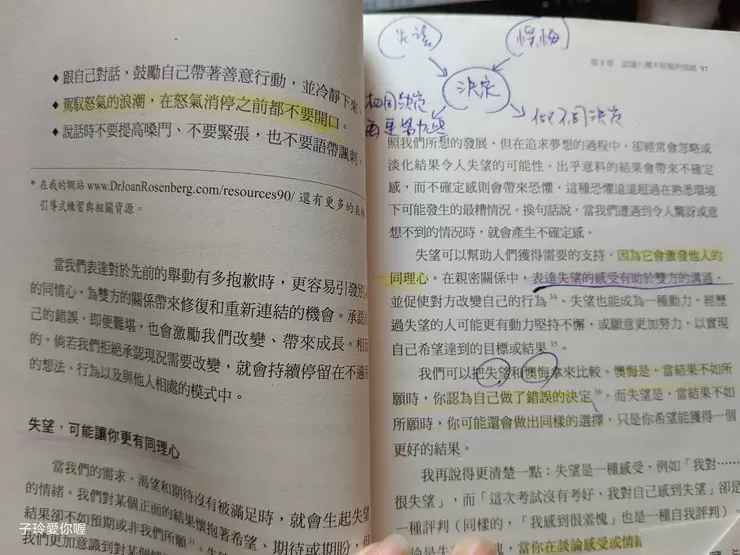 ◆ 跟自己對話,鼓勵自己帶著善意行動,並冷靜下來。
◆ 駕馭怒氣的浪潮,在怒氣消停之前都不要開口。
◆ 說話時不要提高嗓門、不要緊張,也不要語帶諷刺。
* 在我的網站 www.DrJoanRosenberg.com/resources90/ 還有更多的表
引導式練習與相關資源。
當我們表達對於先前的舉動有多抱歉時,更容易引發別
的同情心,為雙方的關係帶來修復和重新連結的機會。承認
己的錯誤,即使難堪,也會激勵我們改變、帶來成長。相
的,倘若我們拒絕承認現況需要改變,就會持續停留在不適
的想法、行為以及與他人相處的模式中。
失望,可能讓你更有同理心
當我們的需求、渴望和期待沒有被滿足時,就會生起失望
的情緒。我們對某個正面的結果懷抱著希望、期待或期盼,但
結果卻不如預期或非我們所願31。失望
我們更加意識到對某個
子玲愛你喔
第 3 章 認識八種不舒服的情緒 97
失望
懊悔
決定
相同決定
做不同決定
照我們所想的發展,但在追求夢想的過程中,卻經常會忽略或
淡化結果令人失望的可能性。出乎意料的結果會帶來不確定
感,而不確定感則會帶來恐懼,這種恐懼遠遠超過在熟悉環境
下可能發生的最糟情況。換句話說,當我們遭遇到令人驚訝或意
想不到的情況時,就會產生不確定感。
失望可以幫助人們獲得需要的支持,因為它會激發他人的
同理心。在親密關係中,表達失望的感受有助於雙方的溝通,
並促使對方改變自己的行為34。失望也能成為一種動力,經歷
過失望的人可能更有動力堅持不懈,或願意更加努力,以實現
自己希望達到的目標或結果35。
我們可以把失望和懊悔拿來比較。懊悔是,當結果不如所
願時,你認為自己做了錯誤的決定36。而失望是,當結果不如
所願時,你可能還會做出同樣的選擇,只是你希望能獲得一個
更好的結果。
我再說得更清楚一點:失望是一種感受,例如「我對……
很失望」,而「這次考試沒有考好,我對自己感到失望」卻是
一種評判(同樣的,「我感到很羞愧」也是一種自我評判)。
當你在談論感受或情緒